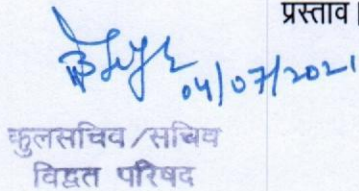 प्रस्ताव।
04/07/2021
कुलसचिव/सचिव
विद्वत परिषद